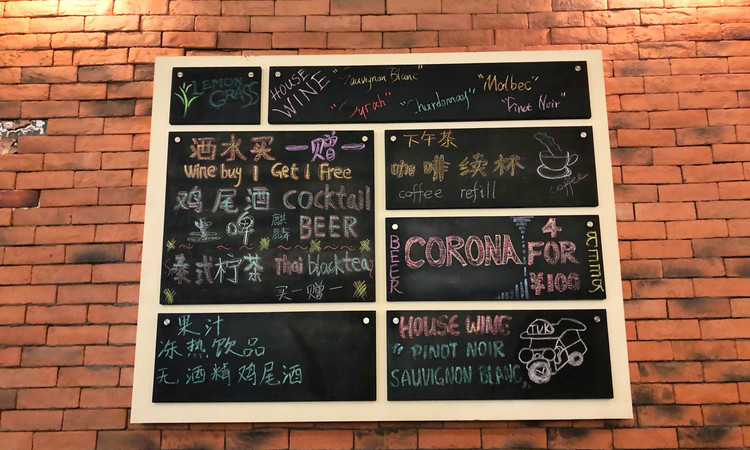 LEMON
GRASS
HOUSE
WINE
"Sauvignon Blanc"
"Syrah"
"Chardonnay"
"Malbec"
"Pinot Noir"
洒水买 一赠一
Wine buy 1 Get 1 Free
鸡尾酒 cocktail
啤 麒麟 BEER
泰式柠茶 Thai black tea
买一赠一
下午茶
咖啡续杯
coffee refill
coffee
BEER
CORONA
4
FOR
¥100
BEER
果汁
冻热饮品
无酒精鸡尾酒
HOUSE WINE
PINOT NOIR
SAUVIGNON BLANC
TUK